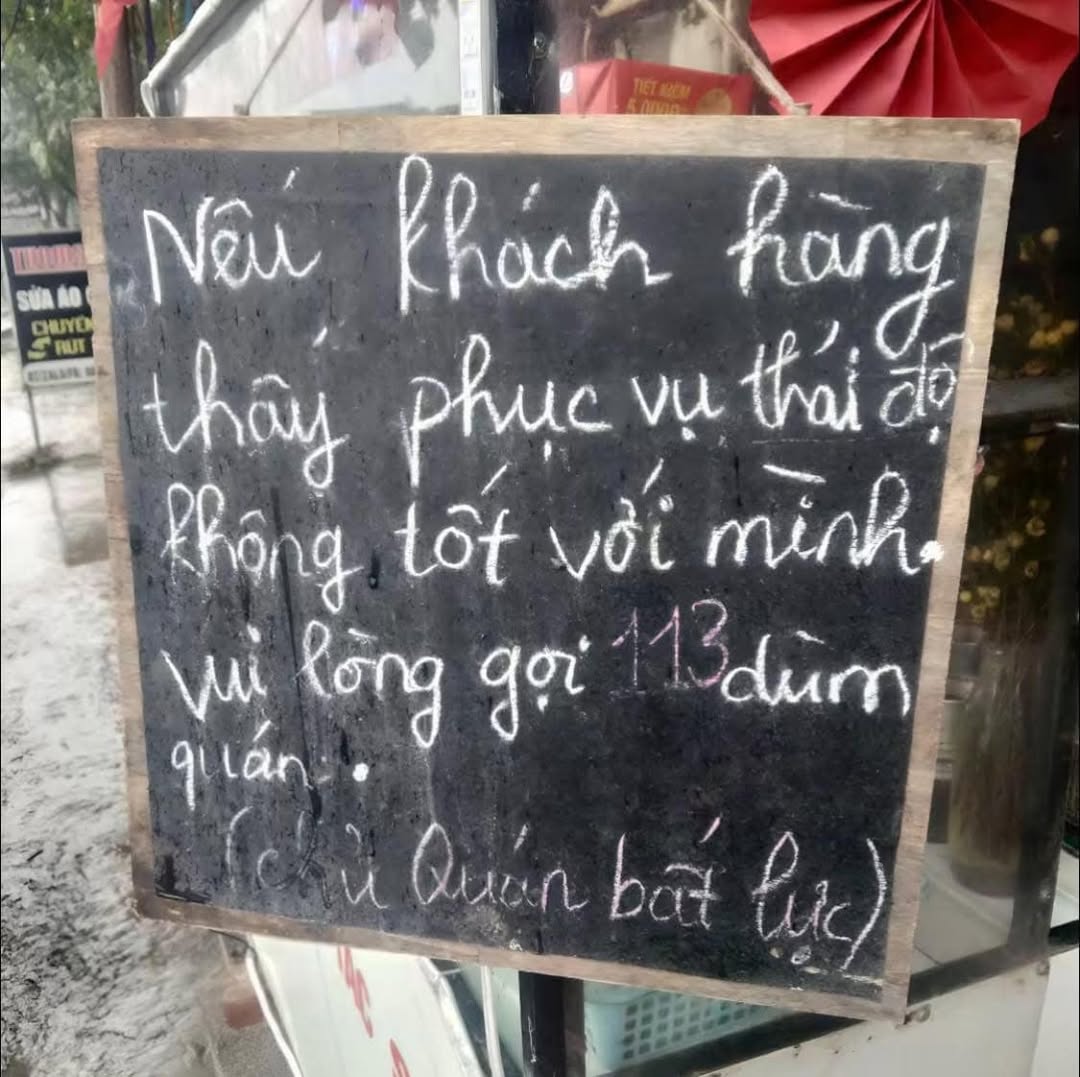 TIẾT KIỆM
5.000Đ
SỬA ÁO
CHUYÊN
RÚT
Nếu khách hàng
thấy phục vụ thái độ
không tốt với mình.
vui lòng gọi 113 dùm
quán.
(chủ Quán bất lực)